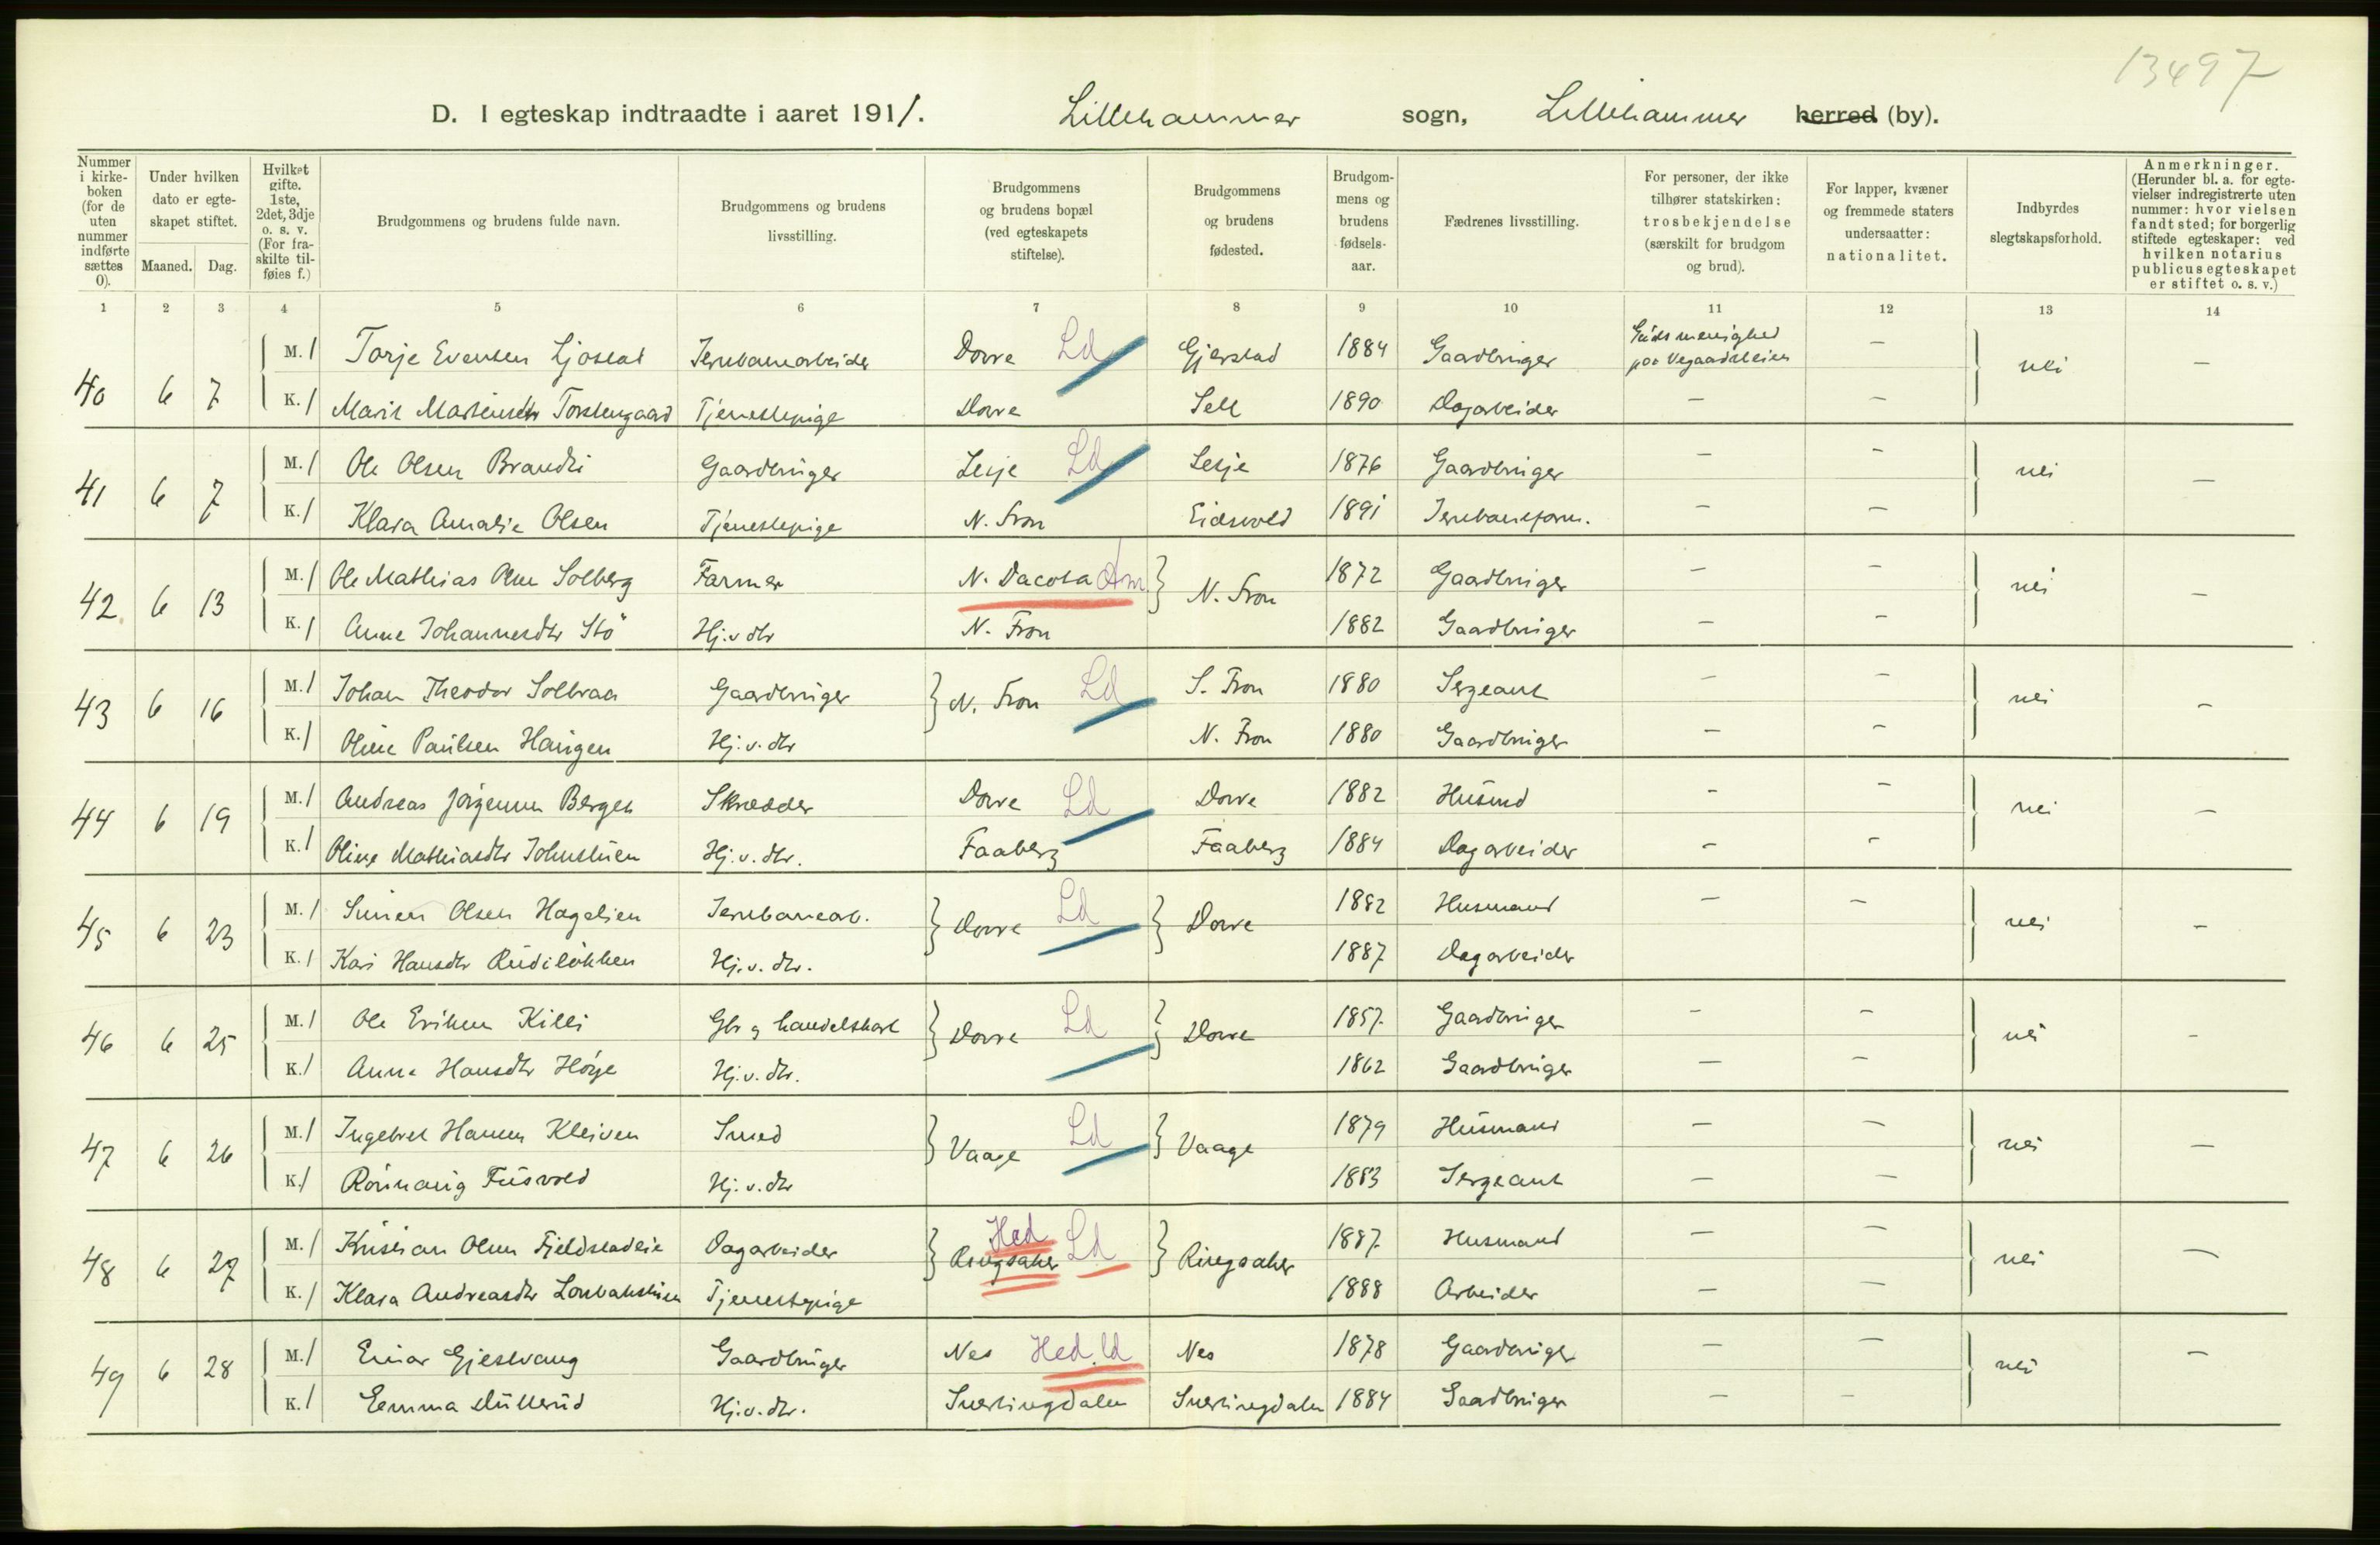 13497
D. I egteskap indtraadte i aaret 1911. Lillehammer sogn, Lillehammer herred (by).
Nummer i kirke-boken (for de uten nummer indførte sættes 0).
Under hvilken dato er egte-skapet stiftet.
Maaned. Dag.
Hvilket gifte. 1ste, 2det, 3dje o. s. v. (For fra-skilte til-føies f.)
Brudgommens og brudens fulde navn.
Brudgommens og brudens livsstilling.
Brudgommens og brudens bopæl (ved egteskapets stiftelse).
Brudgommens og brudens fødested.
Brudgom-mens og brudens fødsels-aar.
Fædrenes livsstilling.
For personer, der ikke tilhører statskirken: trosbekjendelse (særskilt for brudgom og brud).
For lapper, kvæner og fremmede staters undersaatter: nationalitet.
Indbyrdes slegtskapsforhold.
Anmerkninger. (Herunder bl. a. for egte-vielser indregistrerte uten nummer: hvor vielsen fandt sted; for borgerlig stiftede egteskaper: ved hvilken notarius publicus egteskapet er stiftet o. s. v.)
1 2 3 4 5 6 7 8 9 10 11 12 13 14
40 6 7 M. 1 Torje Evensen Ljosland Jernbanearbeider Dovre Ld Gjerstad 1884 Gaardbruger Guds menighed paa Vegaardsheien — nei —
K. 1 Marit Martinsdtr Torstengaard Tjenestepige Dovre Sell 1890 Dagarbeider — —
41 6 7 M. 1 Ole Olsen Brandli Gaardbruger Lesje Ld Lesje 1876 Gaardbruger — — nei —
K. 1 Klara Amalie Olsen Tjenestepige N. Fron Eidsvold 1891 Jernbaneform. — —
42. 6 13 M. 1 Ole Mathias Olsen Solberg Farmer N. Dacota Am } N. Fron 1872 Gaardbruger — — nei —
K. 1 Anne Johannesdtr Stö Hj.v dtr N. Fron 1882 Gaardbruger — —
43 6 16 M. 1 Johan Theodor Solbraa Gaardbruger } N. Fron Ld S. Fron 1880 Sergeant — — nei —
K. 1 Oline Paulsen Haugen Hj.v.dtr N. Fron 1880 Gaardbruger — —
44 6 19 M. 1 Andreas Jörgensen Bergen Skrædder Dovre Ld Dovre 1882 Husmd — — nei —
K. 1 Oline Mathiasdtr Johnstuen Hj.v.dtr. Faaberg Faaberg 1884 Dagarbeider — —
45 6 23 M. 1 Simen Olsen Hagelien Jernbanearb. } Dovre Ld } Dovre 1882 Husmand — — nei —
K. 1 Kari Hansdtr Rudiløkken Hj.v.dtr. 1887 Dagarbeider
46 6 25 M. 1 Ole Eriksen Killi Gbr og handelskarl } Dovre Ld } Dovre 1857. Gaardbruger — — nei —
K. 1 Anne Hansdtr Høye Hj.v.dtr. 1862 Gaardbruger — —
47 6 26 M. 1 Ingebret Hansen Kleiven Smed } Vaage Ld } Vaage 1879 Husmand — — nei —
K. 1 Rönnaug Tusvold Hj.v.dtr 1883 Sergeant — —
48 6 27 M. 1 Kristian Olsen Fjeldstadeie Dagarbeider } Ringsaker Hed Ld } Ringsaker 1887. Husmand — — nei —
K. 1 Klara Andreasdtr Tjenestepige 1888 Arbeider — —
49 6 28 M. 1 Einar Gjestvang Gaardbruger Nes Hed. ld Nes 1878 Gaardbruger — — nei —
K. 1 Emma Düllerud Hj.v.dtr. Snertingdalen Snertingdalen 1884 Gaardbruger — —